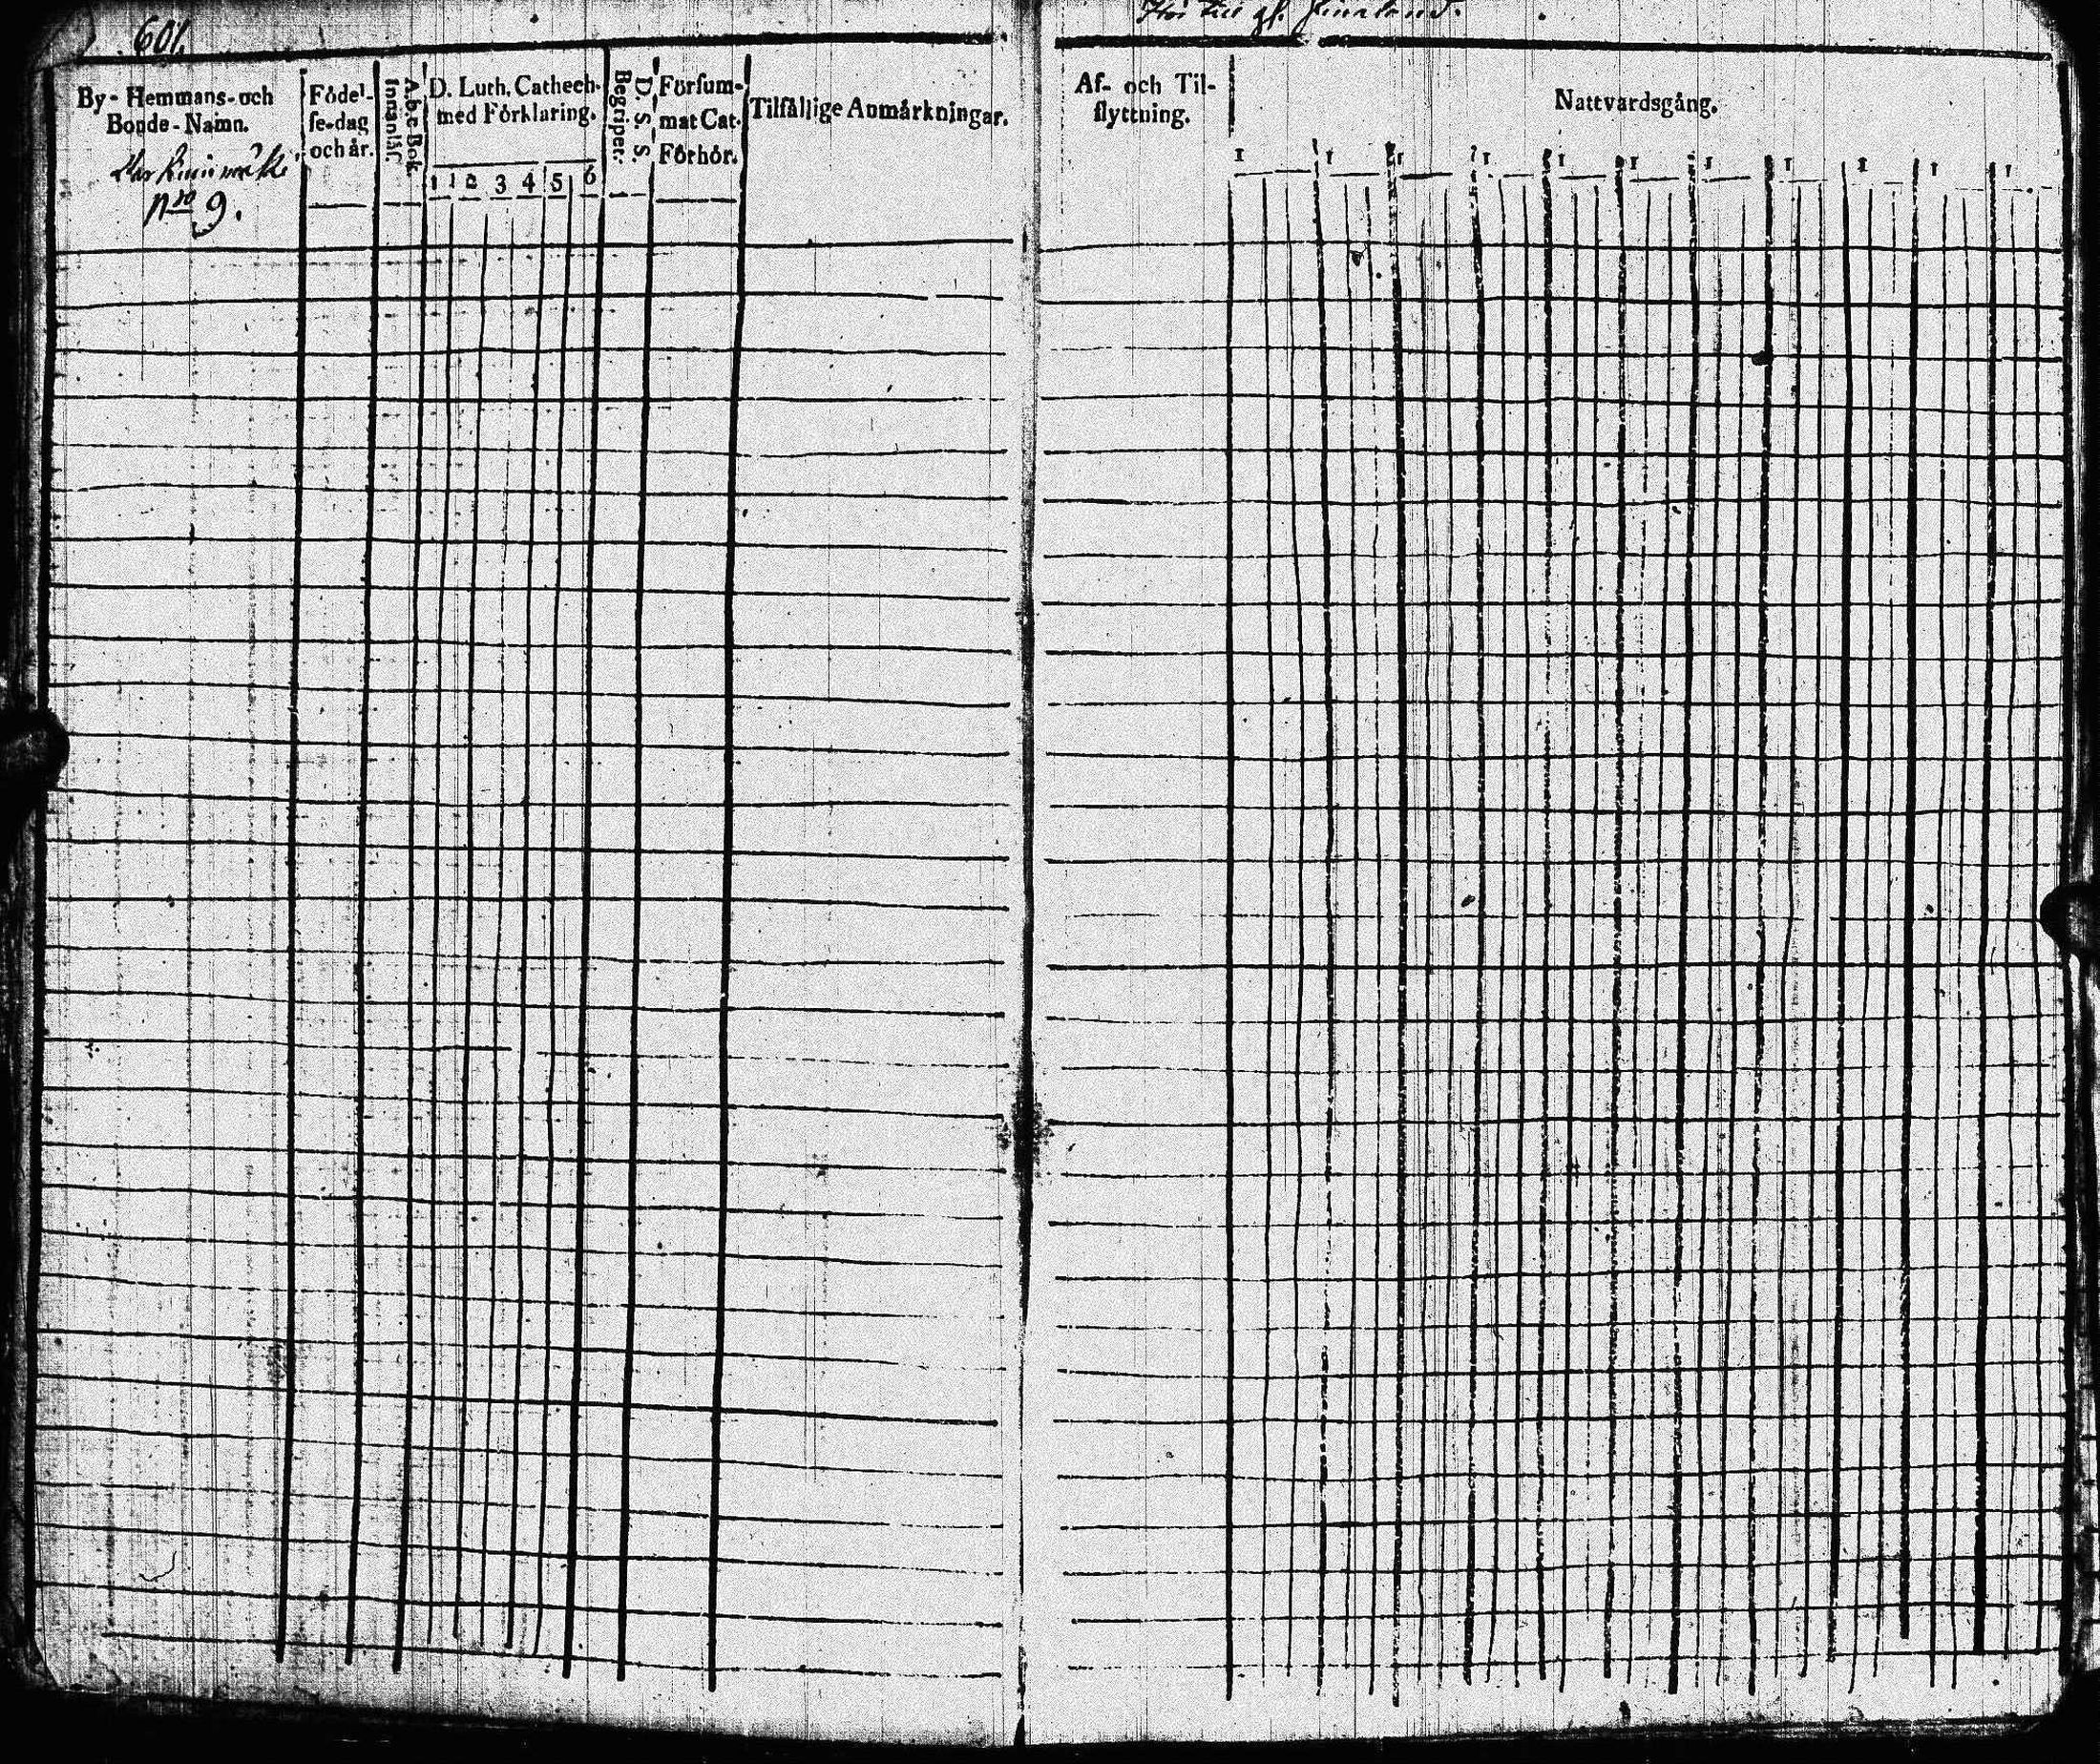 601.
Hör till gl. Finnland.
By- Hemmans- och
Bonde-Namn.
N:ro 9.
Födel-
se-dag
och år.
A.b.c Bok.
Innanläs.
D. Luth. Cathech.
med Förklaring.
1 1 2 3 4 5 6
D. S. S.
Begripet.
Försum-
mat Cat.
Förhör.
Tilfällige Anmärkningar.
Af- och Til-
flyttning.
Nattvardsgång.
1 1 1 1 1 1 1 1 1 1 1